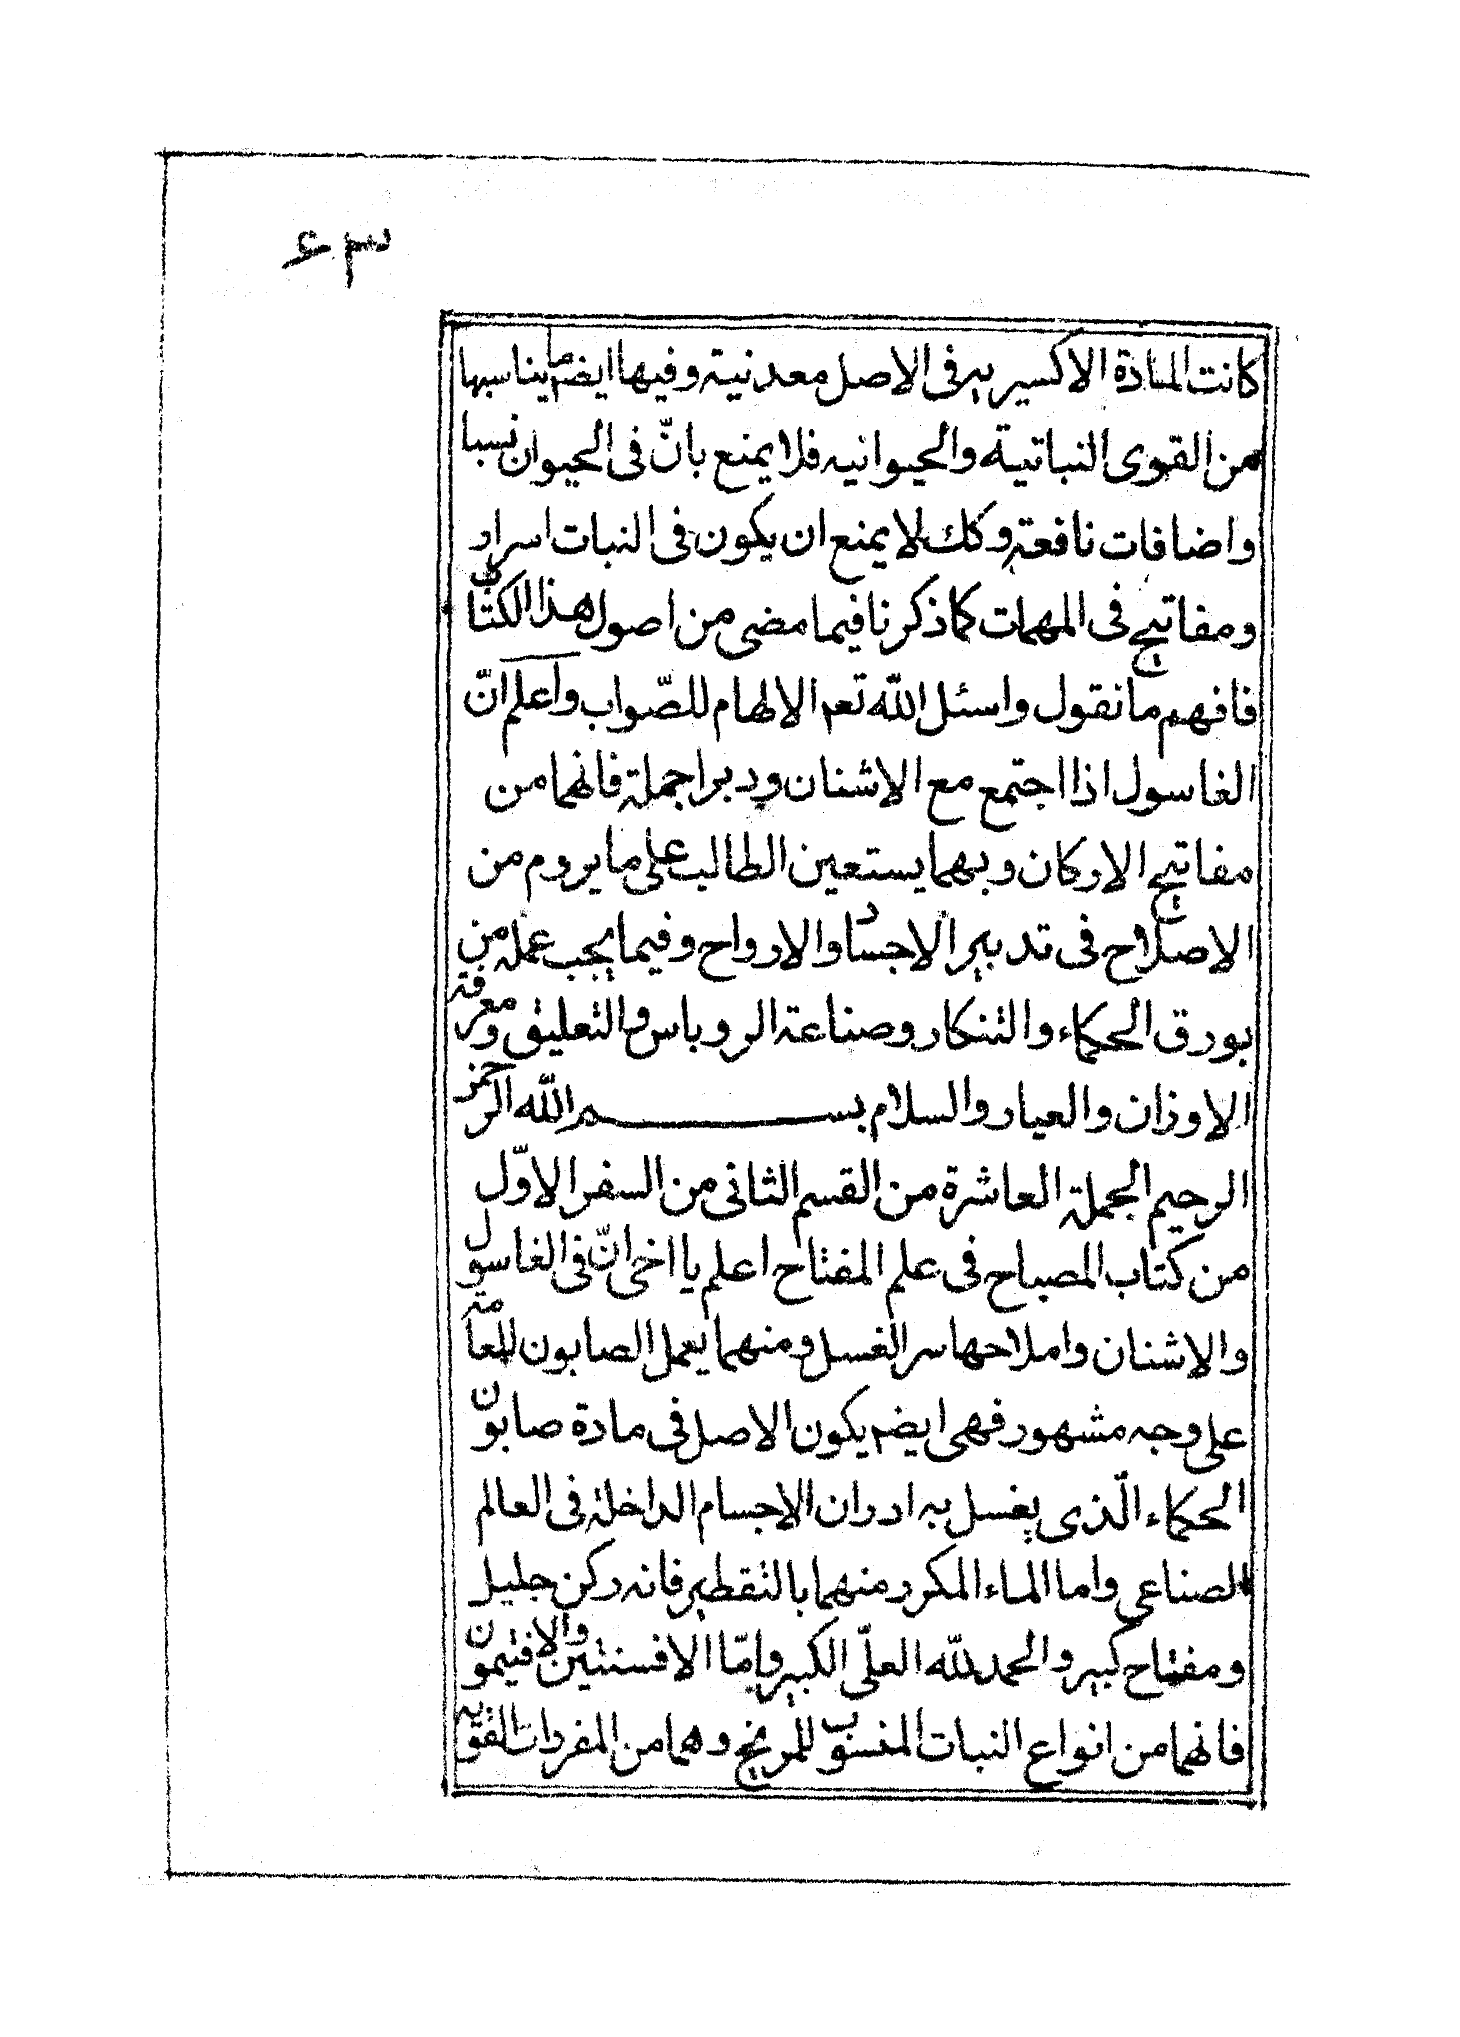 ٤٣
كانت المادة الاكسيريه فى الاصل معدنية وفيها ايضم ما يناسبها
من القوى النباتية والحيوانيه فلا يمنع بانّ فى الحيوان نسبا
واضافات نافعة وكك لا يمنع ان يكون فى النبات اسرار
ومفاتيح فى المهمات كما ذكرنا فيما مضى من اصول هذا الكتاب
فافهم ما نقول واسئل الله تعم الالهام للصّواب واعلم انّ
الغاسول اذا اجتمع مع الاشنان ودبرا جملة فانهما من
مفاتيح الاركان وبهما يستعين الطالب على ما يروم من
الاصلاح فى تدبير الاجساد والارواح وفيما يجب عمله من
بورق الحكماء والتنكار وصناعة الروباس والتعليق ومعرفة
الاوزان والعيار والسلام بسم الله الرحمن
الرحيم الجملة العاشرة من القسم الثانى من السفر الاوّل
من كتاب المصباح فى علم المفتاح اعلم يا اخى انّ فى الغاسول
والاشنان واملاحها سر الغسل ومنهما يعمل الصابون للعامة
على وجه مشهور فهى ايضم يكون الاصل فى مادة صابون
الحكماء الّذى يغسل به ادران الاجسام الداخلة فى العالم
الصناعى واما الماء المكرر منهما بالتقطير فانه ركن جليل
ومفتاح كبير والحمد لله العلّى الكبير وامّا الافسنتين والافتيمون
فانهما من انواع النبات المنسوب للمريخ وهما من المفردات القويه